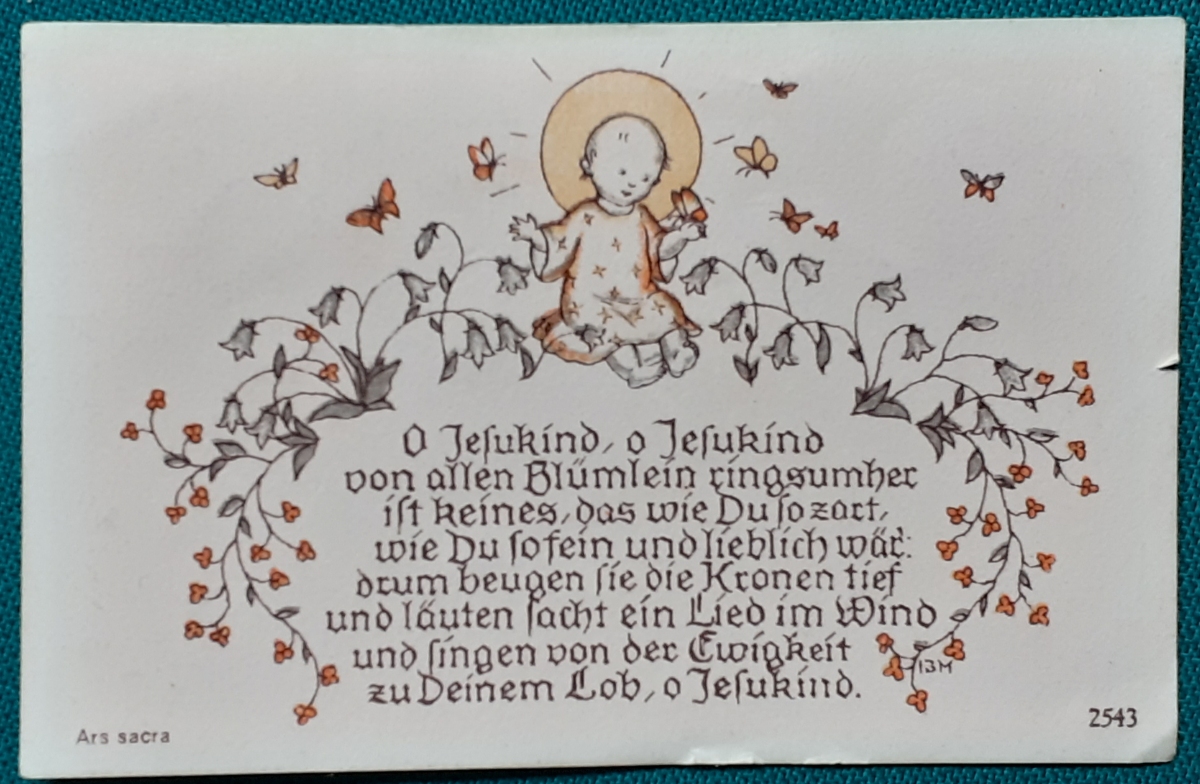 O Jesukind, o Jesukind
von allen Blümlein ringsumher
ist keines, das wie Du so zart,
wie Du so fein und lieblich wär':
drum beugen sie die Kronen tief
und läuten sacht ein Lied im Wind
und singen von der Ewigkeit
zu Deinem Lob, o Jesukind.
IBM
Ars sacra
2543